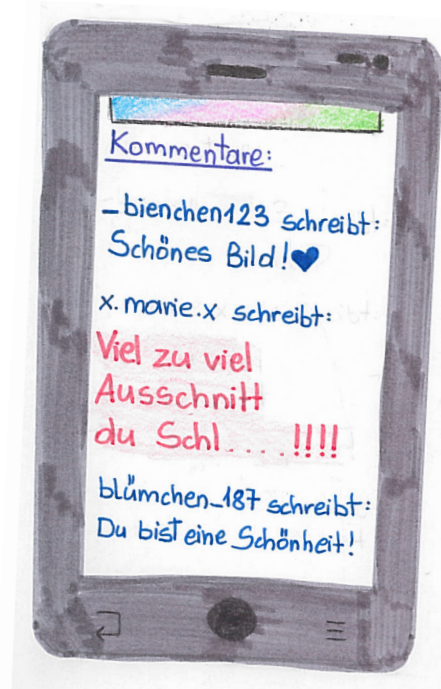 Kommentare:
_bienchen123 schreibt:
Schönes Bild!♥
x.marie.x schreibt:
Viel zu viel
Ausschnitt
du Schl....!!!!
blümchen_187 schreibt:
Du bist eine Schönheit!